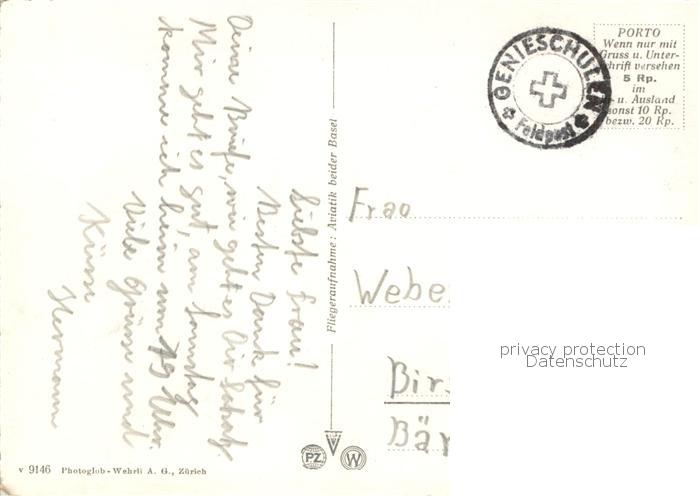 Liebste Frau!
Besten Dank für
Deine Briefe, wie geht es Dir Schatz.
Mir geht es gut, am Sonntag
komme ich heim um 19 Uhr.
Viele Grüsse und
Küsse
Hermann
v 9146 Photoglob-Wehrli A. G., Zürich
Fliegeraufnahme: Aviatik beider Basel
PZ
W
GENIESCHULEN
Feldpost
PORTO
Wenn nur mit
Gruss u. Unter-
schrift versehen
5 Rp.
im
u. Ausland
sonst 10 Rp.
bezw. 20 Rp.
Frau
Webe
Birs
Bär
privacy protection
Datenschutz